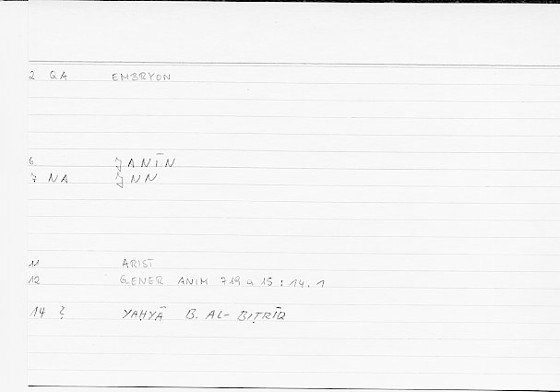 2 GA EMBRYON
6 ǦANĪN
7 NA ǦNN
11 ARIST
12 GENER ANIM 719 a 15 : 14.1
14 ? YAḤYĀ B. AL-BIṬRĪQ